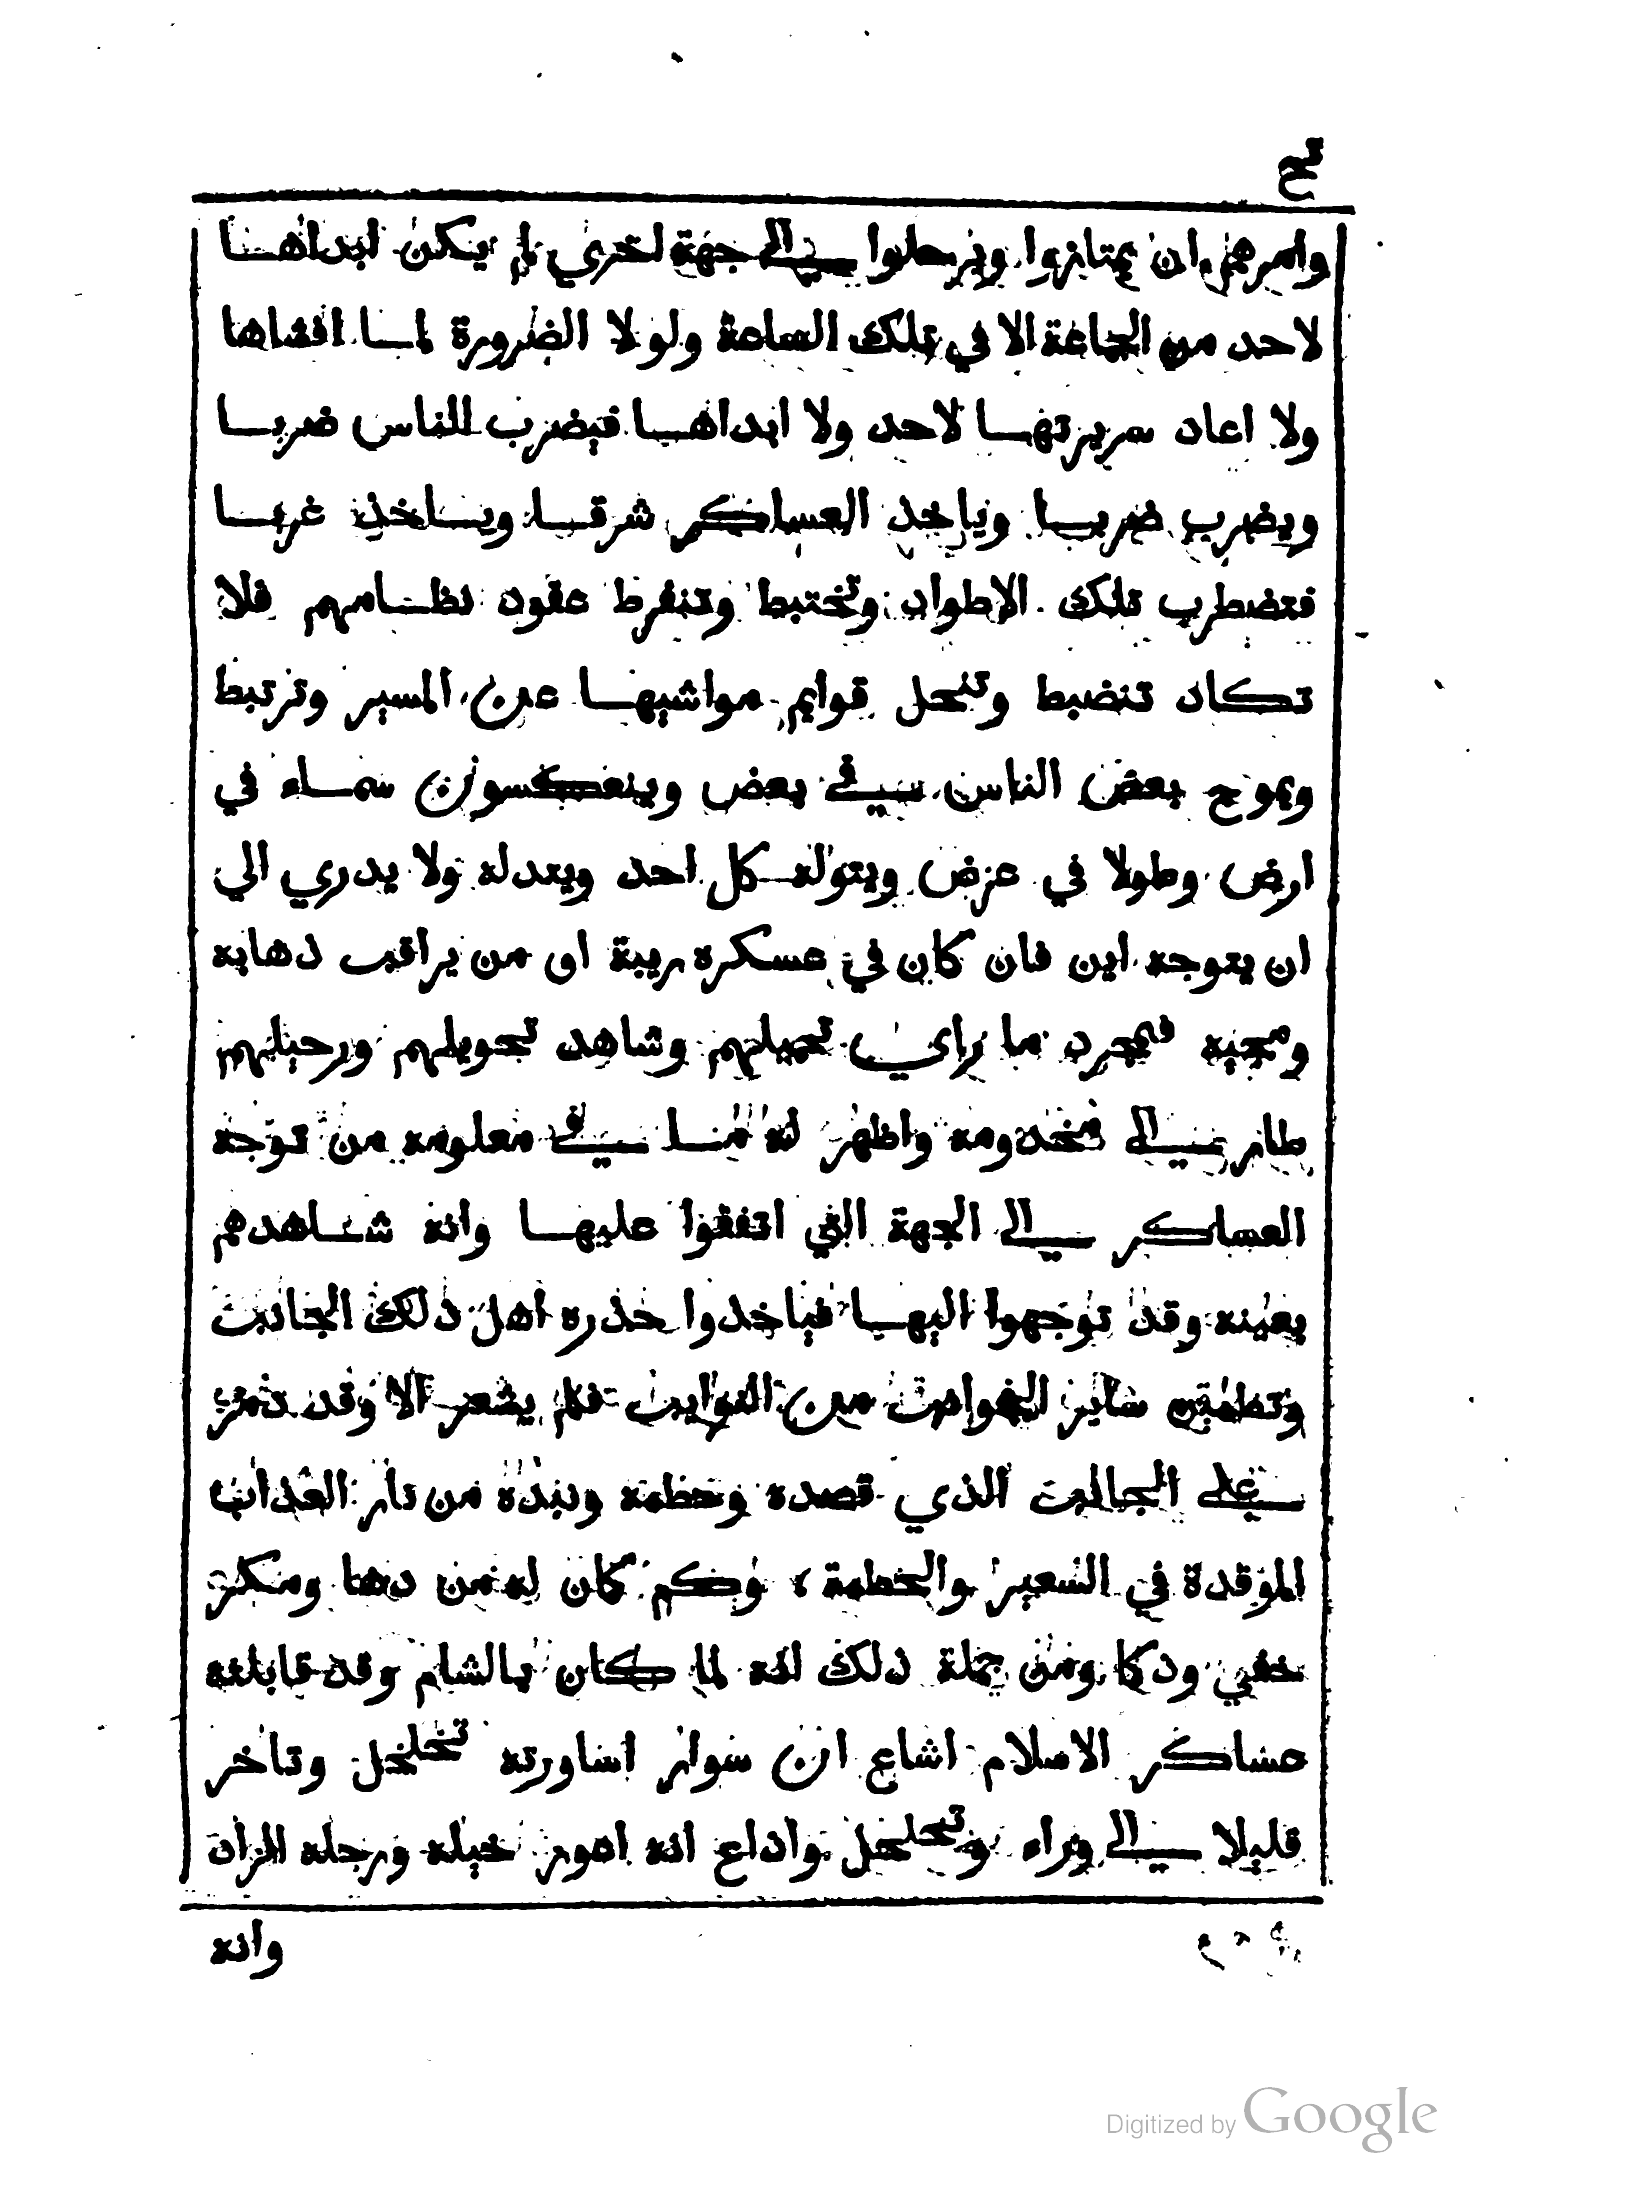 تح
وامرهم ان يمتازوا ويرحلوا الي جهة اخري لم يكن ابداهــا
لاحد من الجماعة الا في تلك الساعة ولولا الضرورة لمــا افشاها
ولا اعاد سريرتهــا لاحد ولا ابداهــا فيضرب للناس ضربــا
ويضرب ضربــا وياخد العساكر شرقــا ويــاخذ غربــا
فتضطرب تلك الاطواد وتختبط وتنفرط عقود نظــامهم فلا
تكاد تنضبط وتنحل قوايم مواشيهــا عن المسير وترتبط
ويموج بعض الناس في بعض وينعكسون سمــاء في
ارض وطولا في عرض ويتوله كل احد ويتدله ولا يدري الي
ان يتوجه اين فان كان في عسكره ريبة او من يراقب دهابه
ومجيه فبمجرد ما راي تحميلهم وشاهد تحويلهم ورحيلهم
طار الي مخدومه واظهر له مــا في معلومه من توجه
العساكر الي الجهة التي اتفقوا عليهــا وانه شــاهدهم
بعينه وقد توجهوا اليهــا فياخدوا حذره اهل ذلك الجانب
وتطمين ساير الجوانب من النوايب فلم يشعر الا وقد دمر
علي الجالب الذي قصده وحطمه ونبذه من نار العذاب
الموقدة في السعير والحطمة، وكم كان له من دها ومكر
خفي ودكا ومن جملة ذلك انه لما كان بالشام وقد قابلته
عساكر الاسلام اشاع ان سوار اساورته تخلخل وتاخر
قليلا الي وراء وتحلحل واذاع انه اعوز خيله ورجله الزاد
وانه